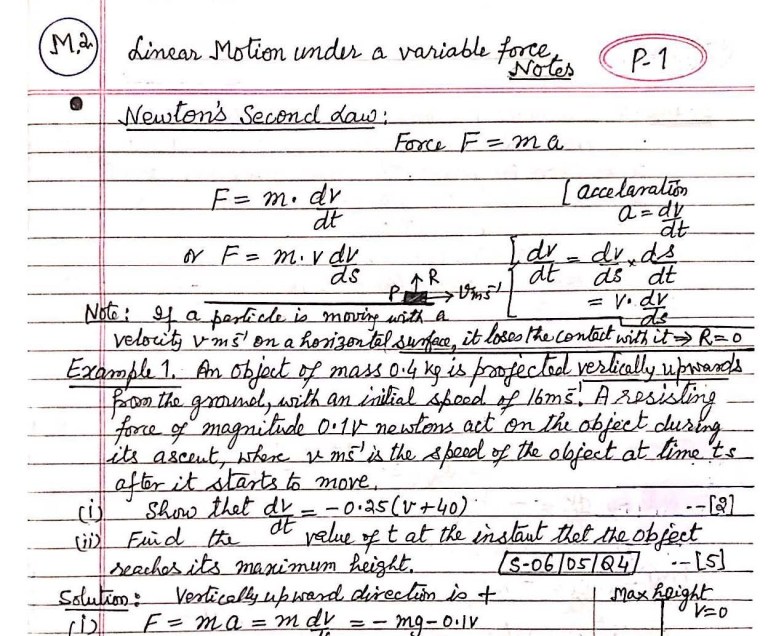 M.2 Linear Motion under a variable force Notes P-1
Newton's Second Law:
Force F = ma
F = m. dv/dt [accelaration a = dv/dt
or F = m.v dv/ds [dv/dt = dv/ds × ds/dt
= v. dv/ds
P R v ms⁻¹
Note: If a particle is moving with a
velocity v ms⁻¹ on a horizontal surface, it loses the contact with it ⇒ R=0
Example 1. An object of mass 0.4 kg is projected vertically upwards
from the ground, with an initial speed of 16 ms⁻¹. A resisting
force of magnitude 0.1v newtons act on the object during
its ascent, where v ms⁻¹ is the speed of the object at time t s
after it starts to move.
(i) Show that dv/dt = -0.25(v+40) --[2]
(ii) Find the value of t at the instant that the object
reaches its maximum height. S-06/05/Q4 --[5]
Solution: Vertically upward direction is + Max height
V=0
(i) F = ma = m dv = -mg-0.1v